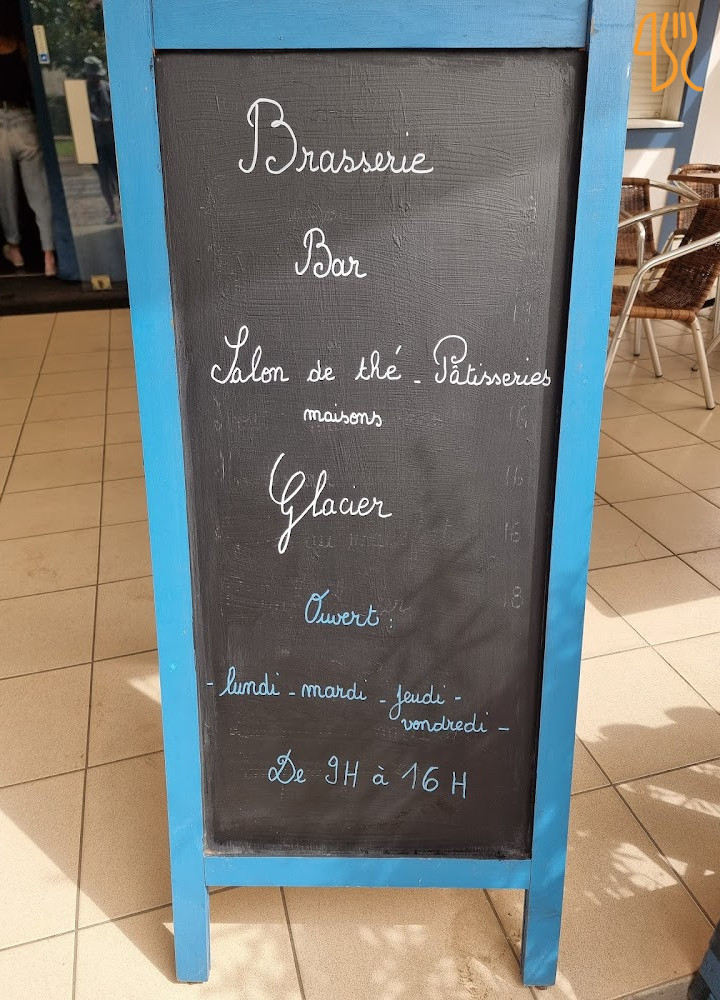 Brasserie
Bar
Salon de thé - Pâtisseries
maisons
Glacier
Ouvert :
- lundi - mardi - jeudi -
vendredi -
De 9H à 16H